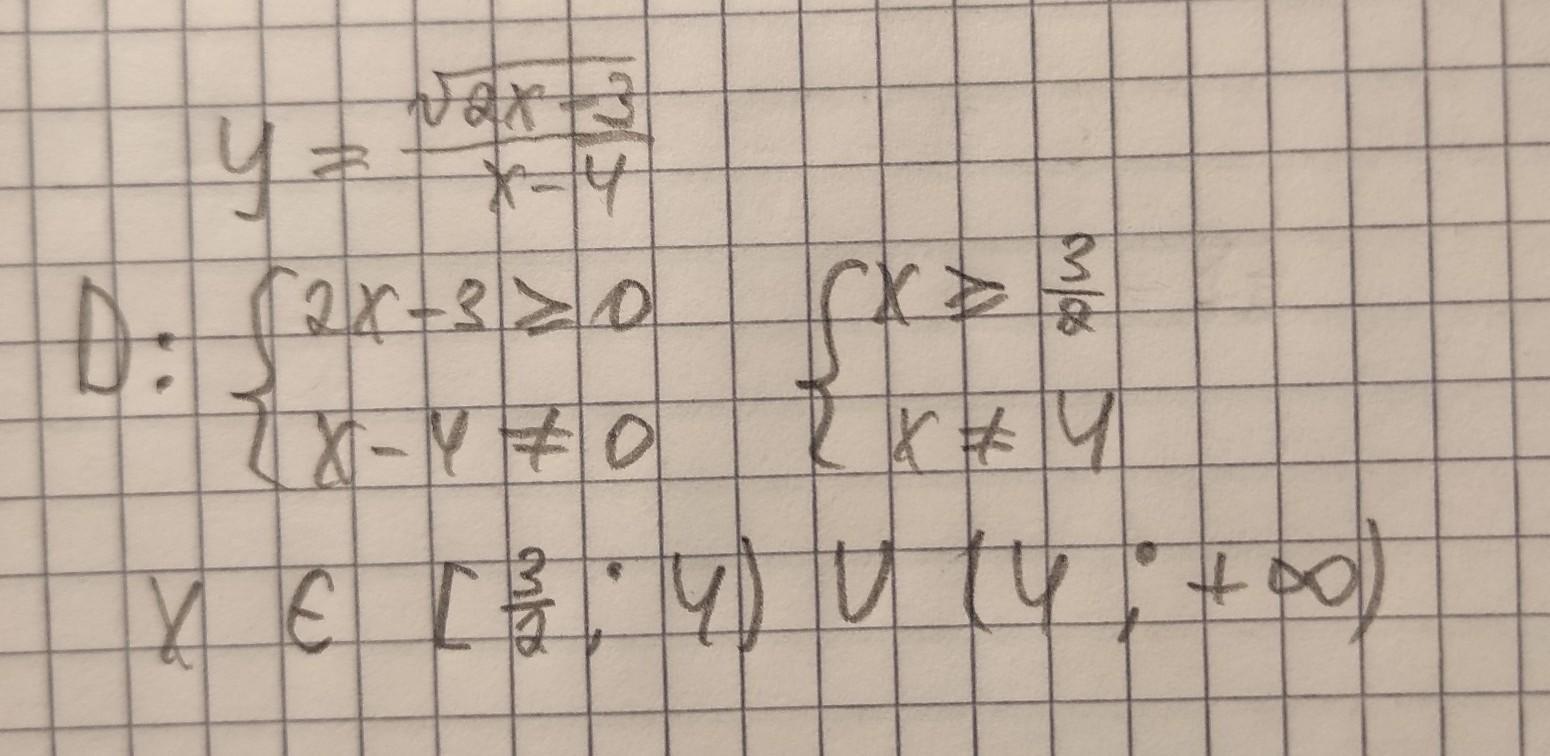 y = √(2x-3) / (x-4)
D: { 2x-3 ≥ 0 { x ≥ 3/2
{ x-4 ≠ 0 { x ≠ 4
x ∈ [3/2; 4) ∪ (4; +∞)